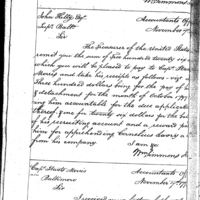 Wm Simmons
John Kilty Esqr. Accountants Of
Supr. Balt. November 9
Sir
The Treasurer of the United States
remit you the sum of five hundred & twenty six
which you will be pleased to pay to Capt
Morris and take his receipts as follows, viz
Three hundred dollars being for the pay of
detachment for the month of October 179
ing him accountable for the due applica
thereof & one for twenty six dollars for the
of his recruiting account and a reward
him for apprehending Cornelius
from his company
I am &c
Wm Simmons
Capt Staats Morris Accountants Of
Baltimore November 9 179
Sir
I received your letter